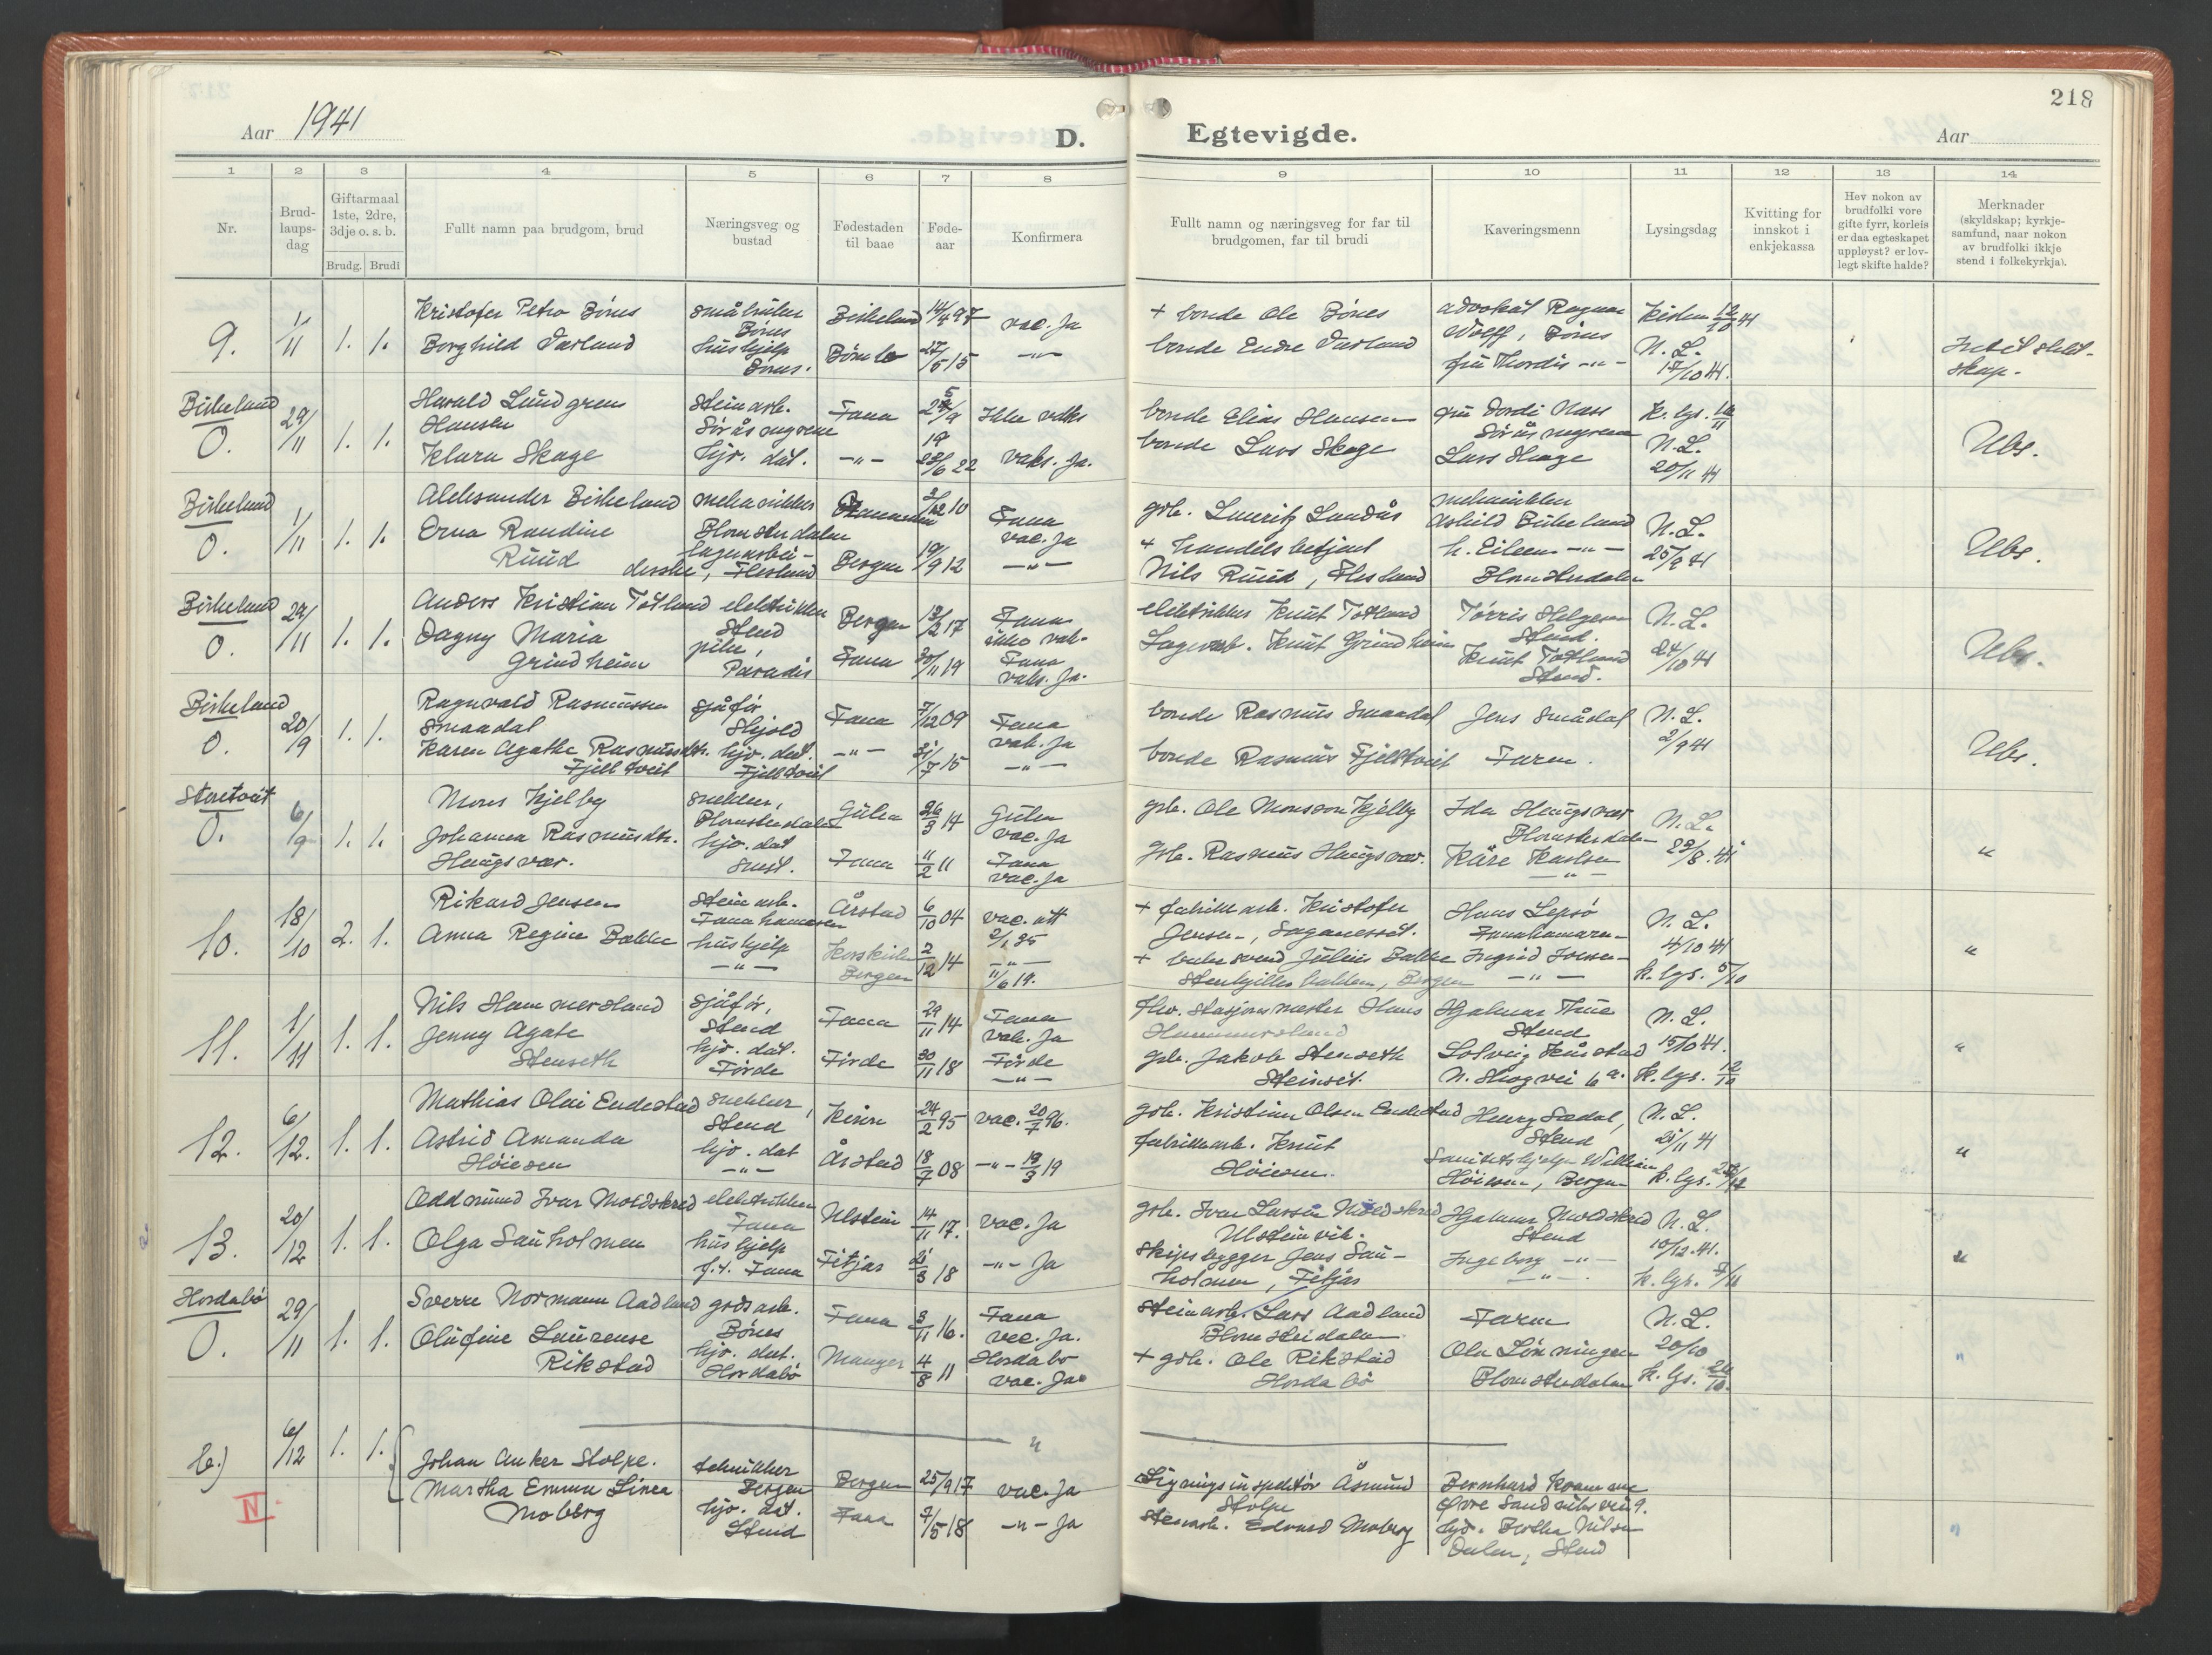 Aar 1941
D. Egtevigde.
Aar
218
1 2 3 4 5 6 7 8 9 10 11 12 13 14
Nr.
Brud-
laups-
dag
Giftarmaal
1ste, 2dre,
3dje o. s. b.
Brudg. Brudi
Fullt namn paa brudgom, brud
Næringsveg og
bustad
Fødestaden
til baae
Føde-
aar
Konfirmera
Fullt namn og næringsveg for far til
brudgomen, far til brudi
Kaveringsmenn
Lysingsdag
Kvitting for
innskot i
enkjekassa
Hev nokon av
brudfolki vore
gifte fyrr, korleis
er daa egteskapet
uppløyst? er lov-
legt skifte halde?
Merknader
(skyldskap; kyrkje-
samfund, naar nokon
av brudfolki ikkje
stend i folkekyrkja).
9. 1/11 1. 1.
Kristofer Petro Bönes
Borghild Vasland
småbruker
Bönes
hushjelp
Bönes.
Birkeland 14/4 97 vac. Ja
Bömlo 27/5 15 -"-
+ bonde Ole Bönes
bonde Endre Vasland
advokat Ragnar
Wolff, Bönes
fru Thordis -"-
Kirken 12/10 41
N. L.
17/10 41.
Intet skild-
skap.
Birkeland
O. 29/11 1. 1.
Harald Lundgren
Hansen
Klara Skage
Steinarb.
hjv. dat.
Fana
-"- 22
Ikke vaks
vaks. Ja.
bonde Elias Hansen
bonde Lars Skage
fru Dordi Hass
Lars Skage
K. lys.
N. L.
20/11 41
Ubs.
Birkeland
O. 1/11 1. 1.
Aleksander Birkeland
Erna Randine
Ruud
mekaniker
Blomsterdalen
lagerarbei-
derske, Flesland
Bergen 19/9 12
Fana
vac. Ja
-"-
grb. Lauritz Landås
+ handelsbetjent
Nils Ruud, Flesland
mekaniker
Askild Birkeland
h. Eileen -"-
Blomsterdalen
N. L.
25/9 41
Ubs.
Birkeland
O. 29/11 1. 1.
Anders Kristian Totland
Dagny Maria
Grindheim
elektriker
Stend
Paradis
Bergen 17
Fana 30/11 19
Fana
ikke vak.
Fana
vaks. Ja.
elektriker Knut Totland
Lagerarb. Knut Grindheim
Tørris Helgesen
Stend.
Knut Totland
Stend.
N. L.
24/10 41
Ubs.
Birkeland
O. 20/9 1. 1.
Ragnvald Rasmussen
Smaadal
Karen Agathe Rasmusdtr.
Fjelltveit
sjåför
Skjold
hjv. dat.
Fjelltveit
Fana 7/12 09
-"- 31/7 15
Fana
vak. Ja
-"-
bonde Rasmus Smaadal
bonde Rasmus Fjelltveit
Jens Smådal
Faren.
N. L.
2/9 41
Ubs.
Storetveit
O. 6/9 1. 1.
Mons Kjelby
Johanna Rasmusdtr.
Haugsvær.
snekker,
Blomsterdalen
hjv. dat
Gulen 26/3 14
Fana 11/2 11
Gulen
vac. Ja
Fana
vac. Ja
grb. Ole Monsson Kjelby
grb. Rasmus Haugsvær.
Ida Haugsvær
Blomsterdalen
Kåre Karlsen
-"-
N. L.
29/8. 41
"
10. 18/10 2. 1.
Rikard Jensen
Anna Regine Bakke
Steinarb.
Fanahamaren
hushjelp
-"-
Årstad 6/10 04
Korskirken
Bergen 2/12 14
vac. att
-"-
11/6 19.
+ fabrikkarb. Kristofer
Jensen, Saganesset.
+ Julius Bakke
Hans Lepsö
Fanahamaren
Ingrid
-"-
N. L.
4/10 41
k. lys. 5/10
"
11. 1/11 1. 1.
Nils Hammersland
Jenny Agate
Stenseth
sjåför,
Stend
hjv. dat.
Förde
Fana 29/11 14
Förde 30/11 18
Fana
vak. Ja
Förde
-"-
fhv. stasjonsmester Hans
Hammersland
grb. Jakob Stenseth
Steinset.
Hjalmar Thue
Stend
Solveig Kårstad
N. Skogvei 6a.
N. L.
15/10 41.
k. lys. 12/10
"
12. 6/12. 1. 1.
Mathias Olai Endestad
Astrid Amanda
Höiesen
snekker,
Stend
hjv. dat
-"-
Kinn 24/2 95
Årstad 18/7 08
vac. 20/7 96.
-"- 19/3 19
grb. Kristian Olsen Endestad
fabrikkarb. Knut
Höiesen.
Henry Sædal,
Stend
Sanitetshjelper William
Höiesen, Bergen
N. L.
21/11 41
k. lys.
"
13. 20/12 1. 1.
Oddmund Ivar Moldskred
Olga Sauholmen
elektriker
Fana
hushjelp
f.t. Fana
Ulstein 14/11 17.
Fitjar 21/3 18
vac. Ja
-"- Ja
grb. Ivar Larsen Moldskred
Ulsteinvik.
Skipsbygger Jens Sau-
holmen, Fitjar
Hjalmar Moldskred
Stend
Ingeborg -"-
-"-
N. L.
10/12. 41.
k. lys.
"
Hordabö
O. 29/11 1. 1.
Sverre Normann Aadland
Olufine Laurense
Rikstad
grdsarb.
Bönes
hjv. dat.
Hordabö
Fana 3/11 16.
Manger 4/8 11
Fana
vac. Ja.
Hordabö
vac. Ja
Steinarb. Lars Aadland
Blomsterdalen
+ grb. Ole Rikstad
Hordabö
Faren
Ola Lönningen
Blomsterdalen
N. L.
20/10
k. lys. 26/10.
"
b.) 6/12 1. 1.
IV.
Johan Anker Stolpe.
Martha Emma Linea
Moberg
tekniker
Bergen
hjv. dat.
Stend
Bergen 25/9 17
Fana 7/5 18
vac. Ja
-"- Ja
Ligningsinspektör Åsmund
Stolpe
Steinarb. Edvard Moberg
Bernhard Kvamme
Övre Sandviksvei 9.
hjv. Bertha Nilsen
Dalen, Stend
"